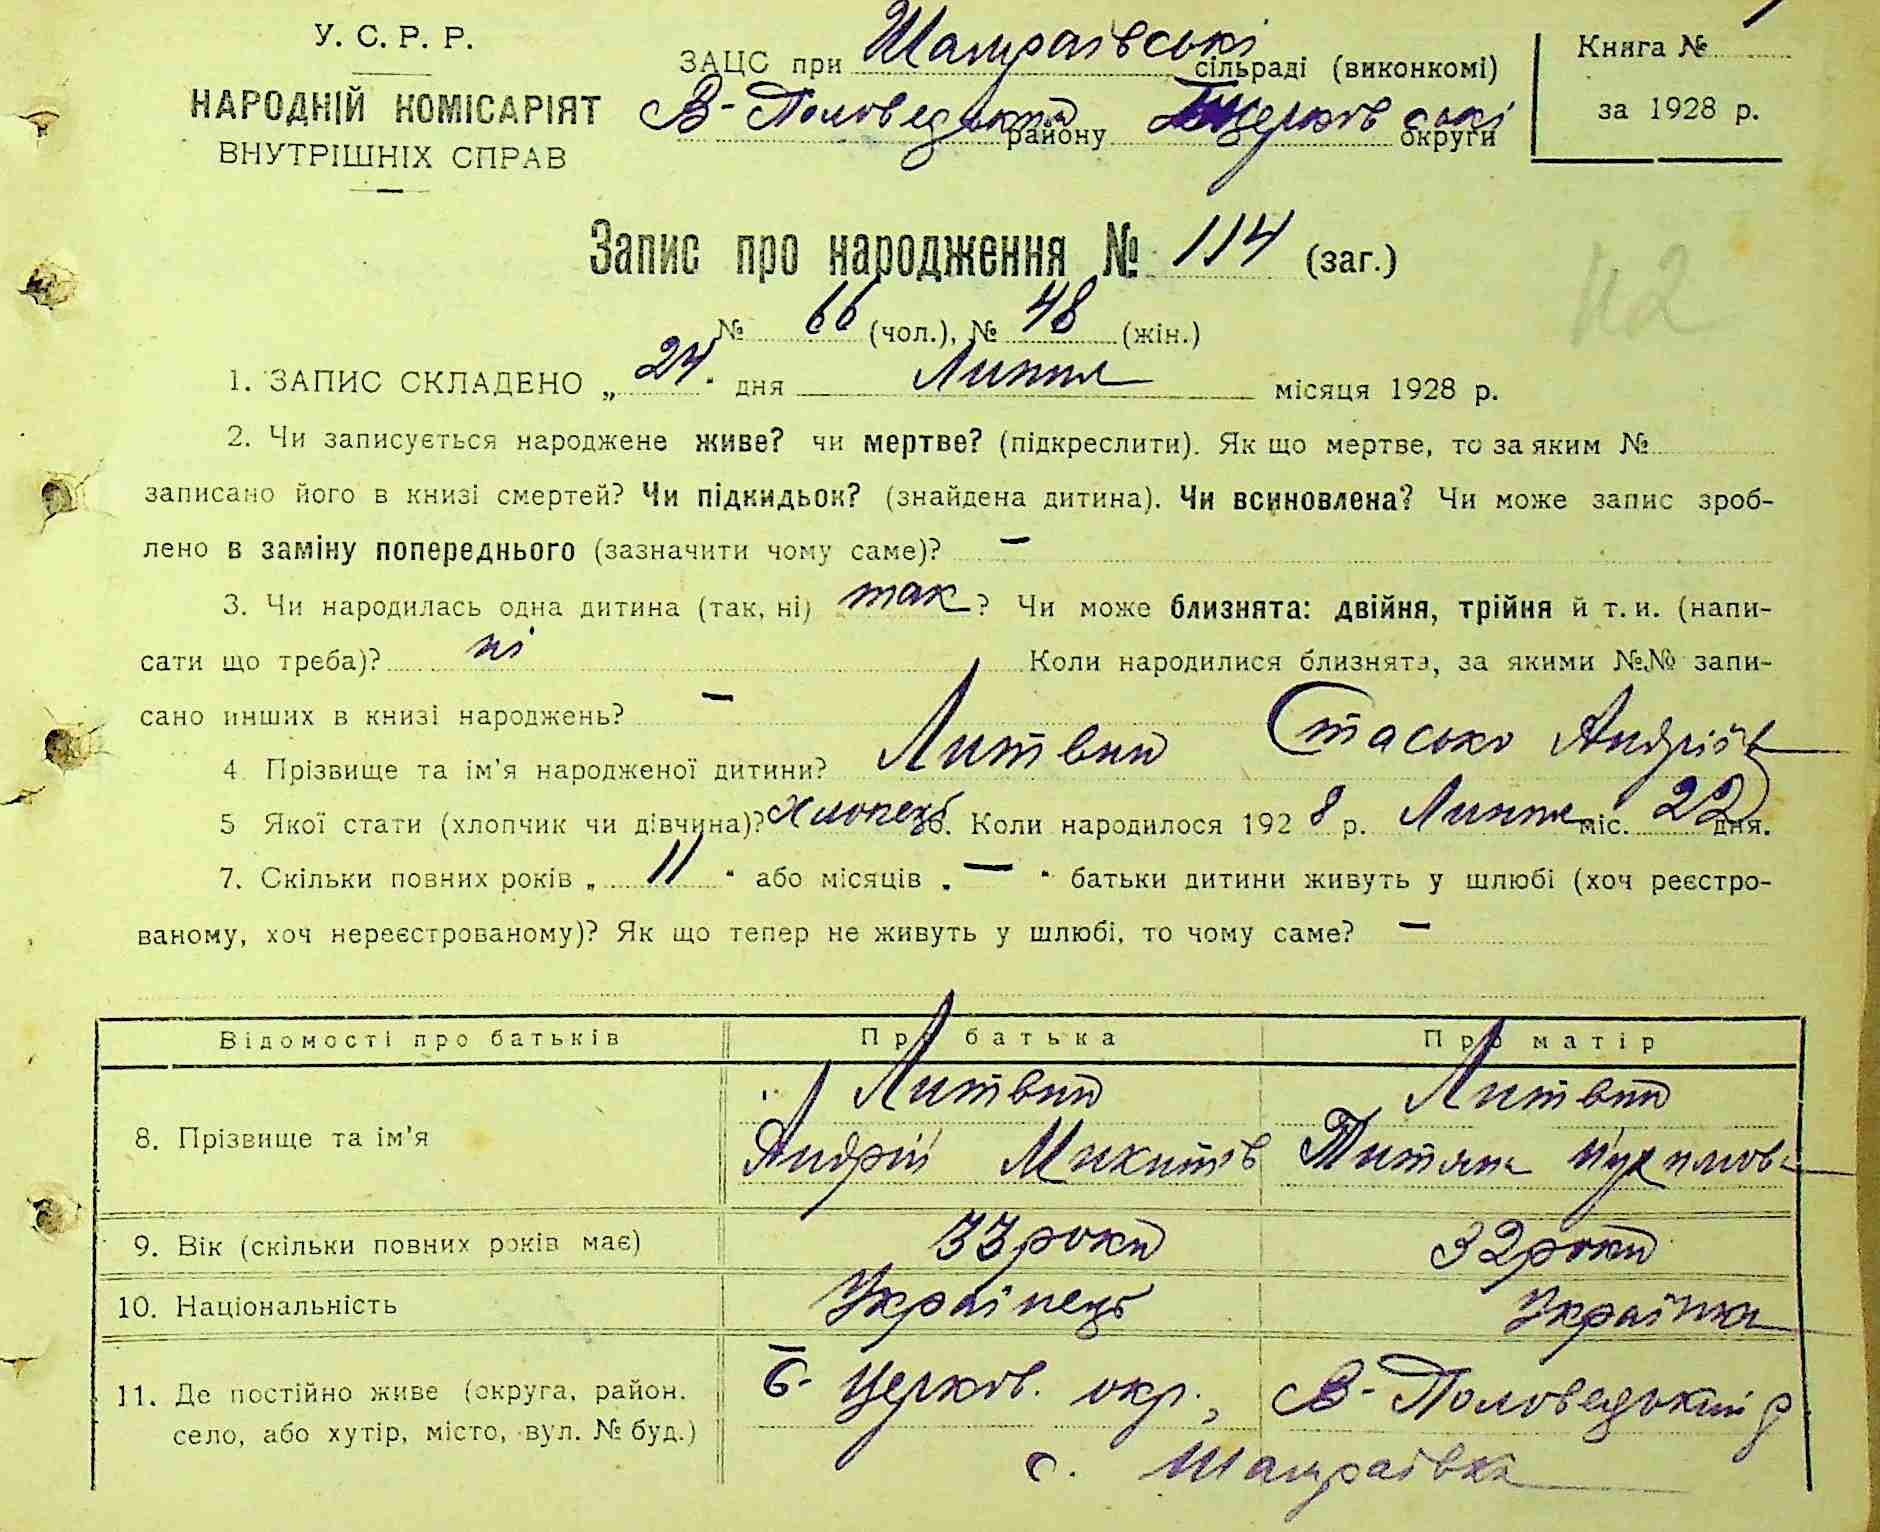 У. С. Р. Р.
НАРОДНІЙ КОМІСАРІЯТ
ВНУТРІШНІХ СПРАВ
ЗАЦС при Шамраївські сільраді (виконкомі)
В-Половецьк району Б Церков ські округи
Книга №
за 1928 р.
Запис про народження № 114 (заг.)
112
№ 66 (чол.), № 48 (жін.)
1. ЗАПИС СКЛАДЕНО „ 24 “ дня Липня місяця 1928 р.
2. Чи записується народжене живе? чи мертве? (підкреслити). Як що мертве, то за яким №
записано його в книзі смертей? Чи підкидьок? (знайдена дитина). Чи всиновлена? Чи може запис зроб-
лено в заміну попереднього (зазначити чому саме)? —
3. Чи народилась одна дитина (так, ні) так ? Чи може близнята: двійня, трійня й т. и. (напи-
сати що треба)? ні Коли народилися близнята, за якими №№ запи-
сано инших в книзі народжень? —
4. Прізвище та ім’я народженої дитини? Литвин Стасько Андріїв
5 Якої стати (хлопчик чи дівчина)? Хлопець 6. Коли народилося 1928 р. Липня міс. 22 дня.
7. Скільки повних років „ 11 “ або місяців „ — “ батьки дитини живуть у шлюбі (хоч реєстро-
ваному, хоч нереєстрованому)? Як що тепер не живуть у шлюбі, то чому саме? —
Відомості про батьків Про батька Про матір
8. Прізвище та ім’я Литвин Андрій Микитів Литвин Титяна
9. Вік (скільки повних років має) 33 роки 32 роки
10. Національність Українець Українка
11. Де постійно живе (округа, район. Б- Церков. окр., В-Половецький р
село, або хутір, місто, вул. № буд.) с. Шамраївка